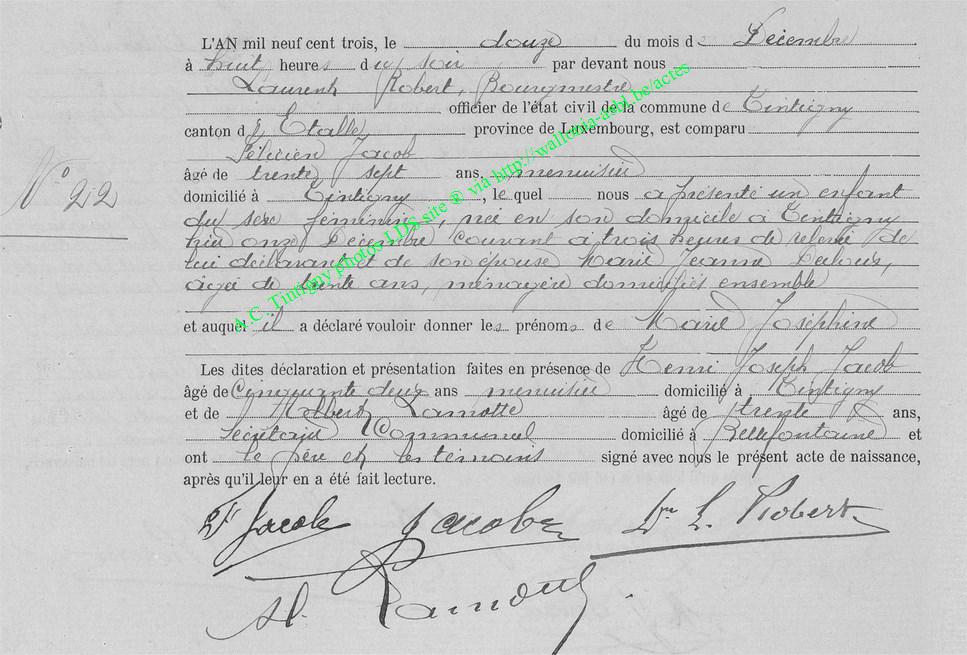 L'AN mil neuf cent trois, le douze du mois de Décembre
à huit heures du soir par devant nous
Laurent Robert, Bourgmestre
officier de l'état civil de la commune de Tintigny
canton d' Etalle, province de Luxembourg, est comparu
Félicien Jacob
âgé de trente sept ans, menuisier
domicilié à Tintigny, lequel nous a présenté un enfant
N° 22
du sexe féminin, née en son domicile à Tintigny
hier onze Décembre courant à trois heures de relevée de
lui déclarant et de son épouse Marie Jeanne
âgée de trente ans, ménagère domiciliés ensemble
et auquel il a déclaré vouloir donner les prénoms de Marie Joséphine
Les dites déclaration et présentation faites en présence de Henri Joseph Jacob
âgé de Cinquante deux ans menuisier domicilié à Tintigny
et de Lamotte âgé de trente ans,
Secrétaire Communal domicilié à Bellefontaine et
ont le père et les témoins signé avec nous le présent acte de naissance,
après qu'il leur en a été fait lecture.
F Jacob Jacob L. Robert
Lamotte
A.C. Tintigny photos LDS site ® via http://wallonia-asbl.be/actes